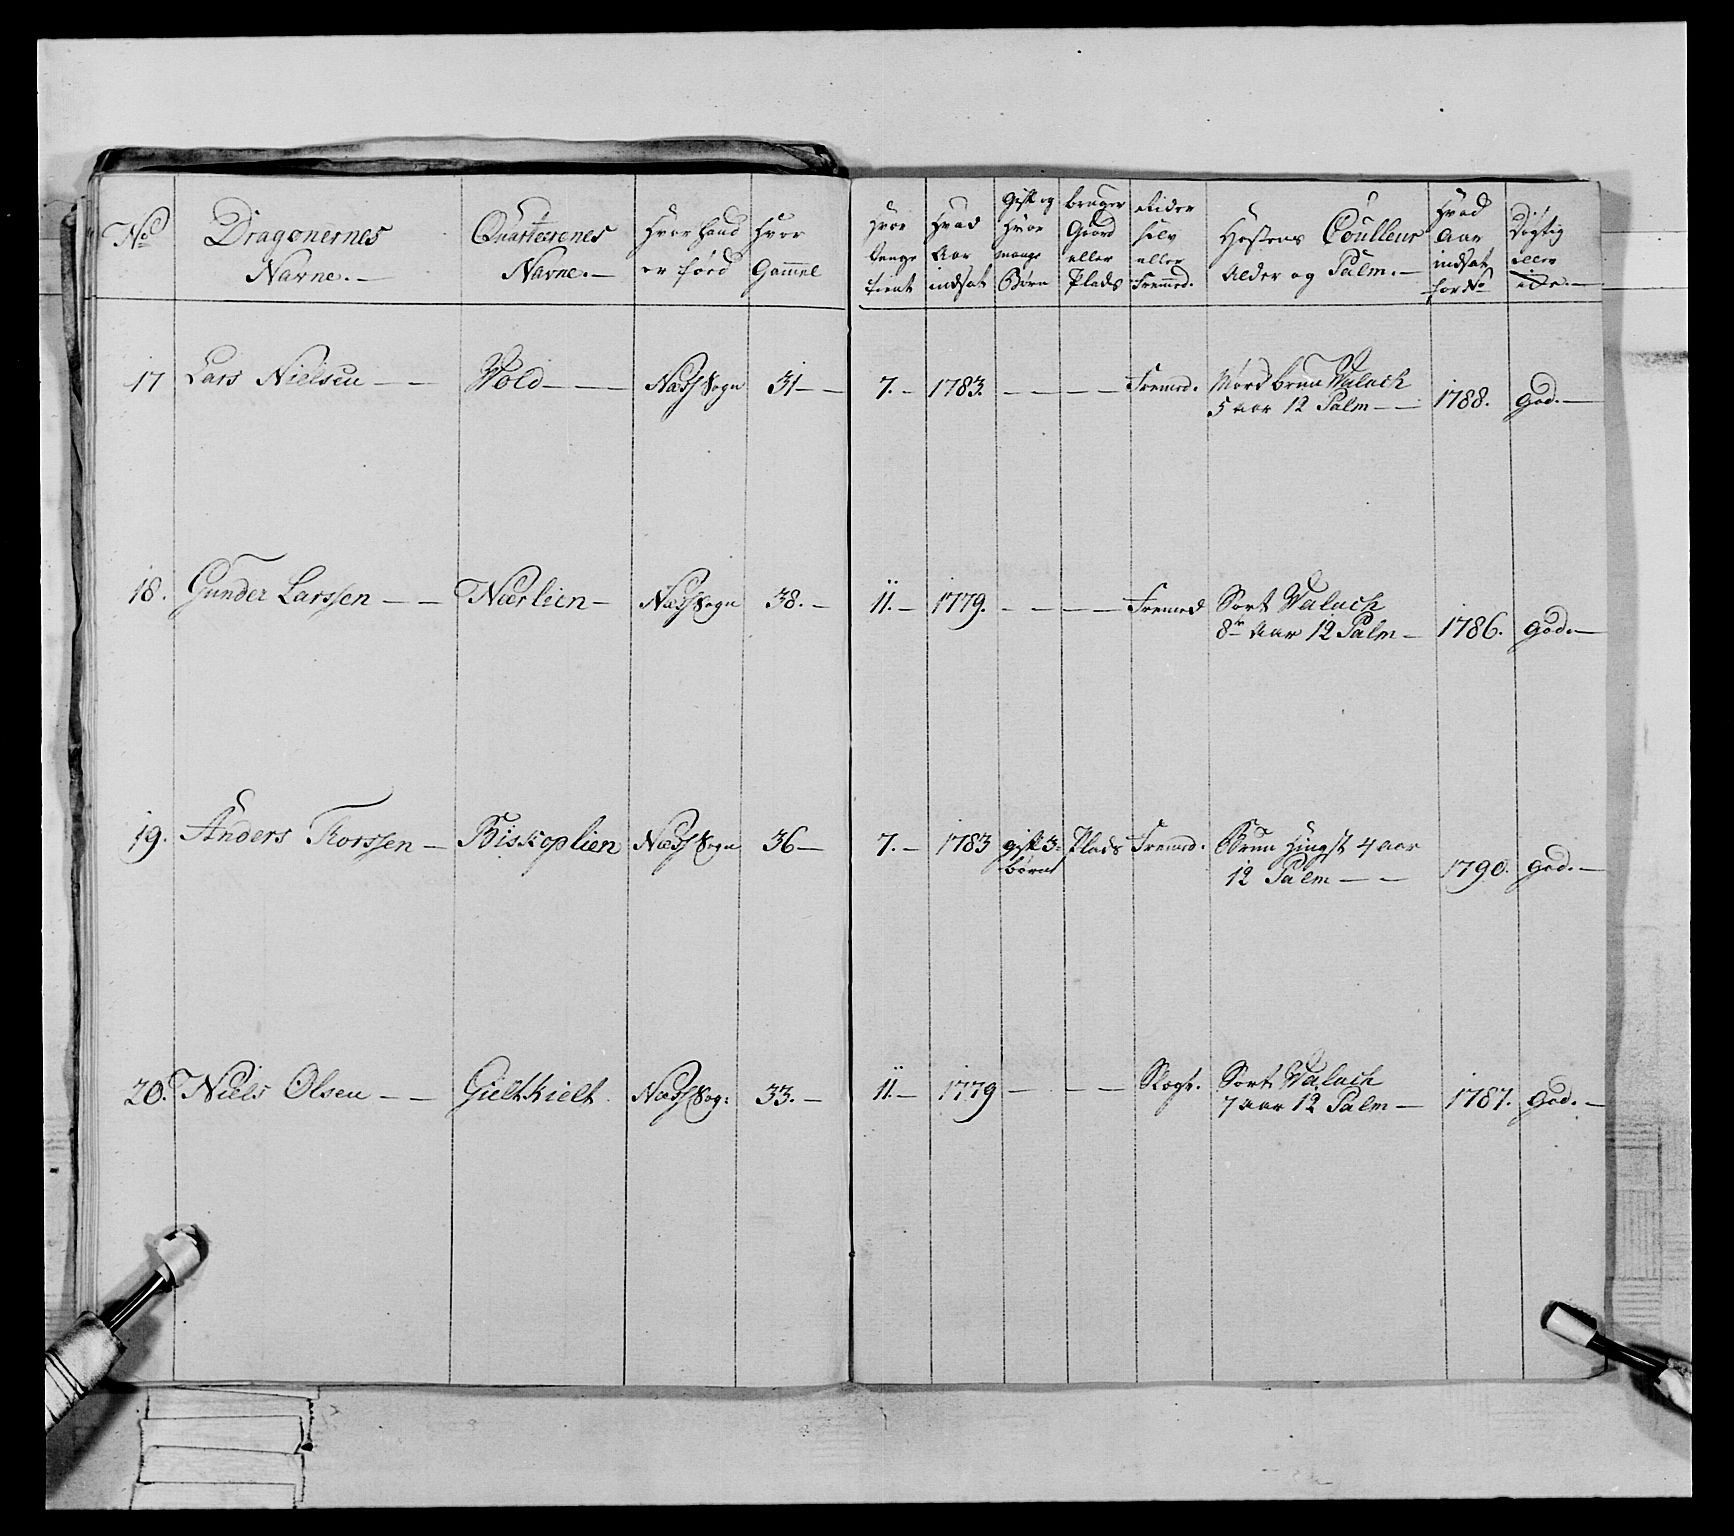 No
Dragonernes Navne.—
Quarterenes Navne.—
Hvor hand er föed
Hvor Gammel
Hvor lenge tient
Hvad Aar indsat
Gift og Hvor mange Börn
bruger Gaard eller Plads
Rider selv eller Fremed.
Hestens Couleur Alder og Palm.—
Hvad Aar indsat for No
Dygtig eller icke.—
17 Lars Nielsen — — Wold — — Næss Sogn 31 — — 7.— 1783. — — — — Fremed. Mörd brun Walach
5 aar 12 Palm — — 1788. God.—
18. Gunder Larssen — — Nærlien — Næss Sogn 38.— 11.— 1779. — — — — Fremed Sort Walach
8te Aar 12 Palm — 1786. god.—
19. Anders Thorssen — Biskoplien Næss Sogn 36 — 7.— 1783 gift 3: Plads Fremed. Brun Hingst 4 aar
börn 12 Palm — — 1790. god.—
20. Niels Olsen — — Gieltkielt. Næss Sog: 33.— 11.— 1779 — — — Sort Walach
7 aar 12 Palm — 1787. God.—